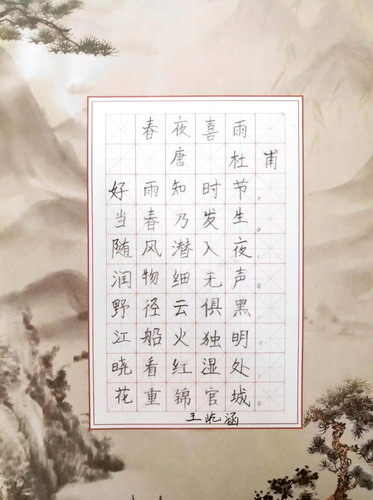 春夜喜雨
唐 杜甫
好雨知时节，
当春乃发生。
随风潜入夜，
润物细无声。
野径云俱黑，
江船火独明。
晓看红湿处，
花重锦官城。
王屹涵